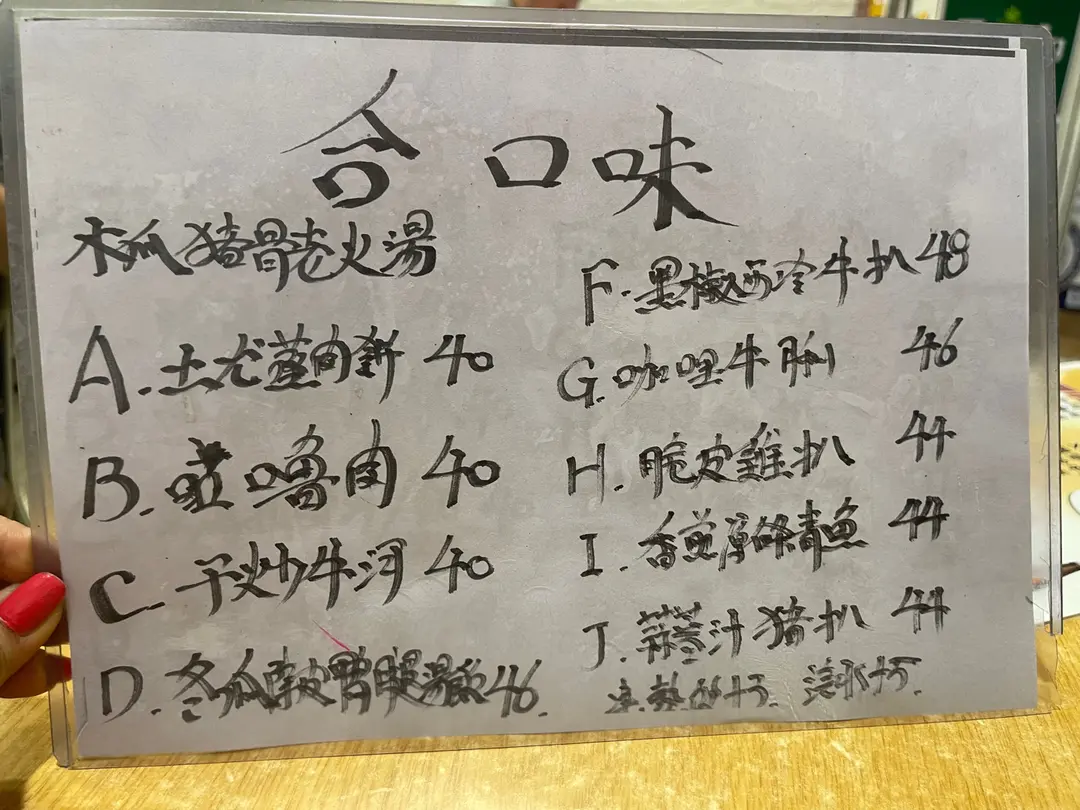 合口味
木瓜豬骨老火湯
A. 土尤蒸肉餅 40
B. 咕嚕肉 40
C. 干炒牛河 40
D. 冬瓜陳皮鴨腿湯飯 46.
F. 黑椒西冷牛扒 48
G. 咖哩牛腩 46
H. 脆皮雞扒 44
I. 香煎厚條青魚 44
J. 蒜蓉汁豬扒 44
凍.熱 汽水